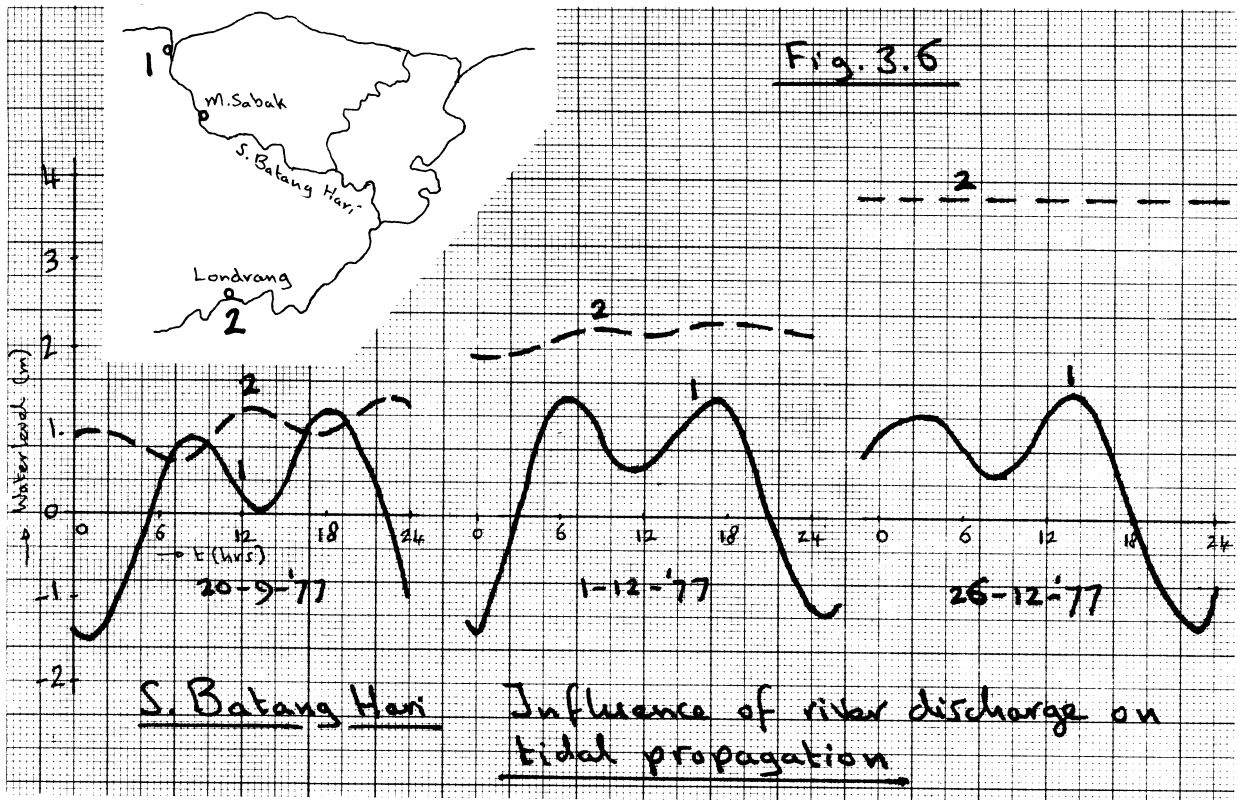 Fig. 3.6
1
m. Sabak
S. Batang Hari
Londrang
2
→ Water level (m)
4
3
2
1
0
-1
-2
2
1
0 6 12 18 24
→ t (hrs)
20-9-'77
2
1
0 6 12 18 24
1-12-'77
2
1
0 6 12 18 24
26-12-'77
S. Batang Hari
Influence of river discharge on
tidal propagation